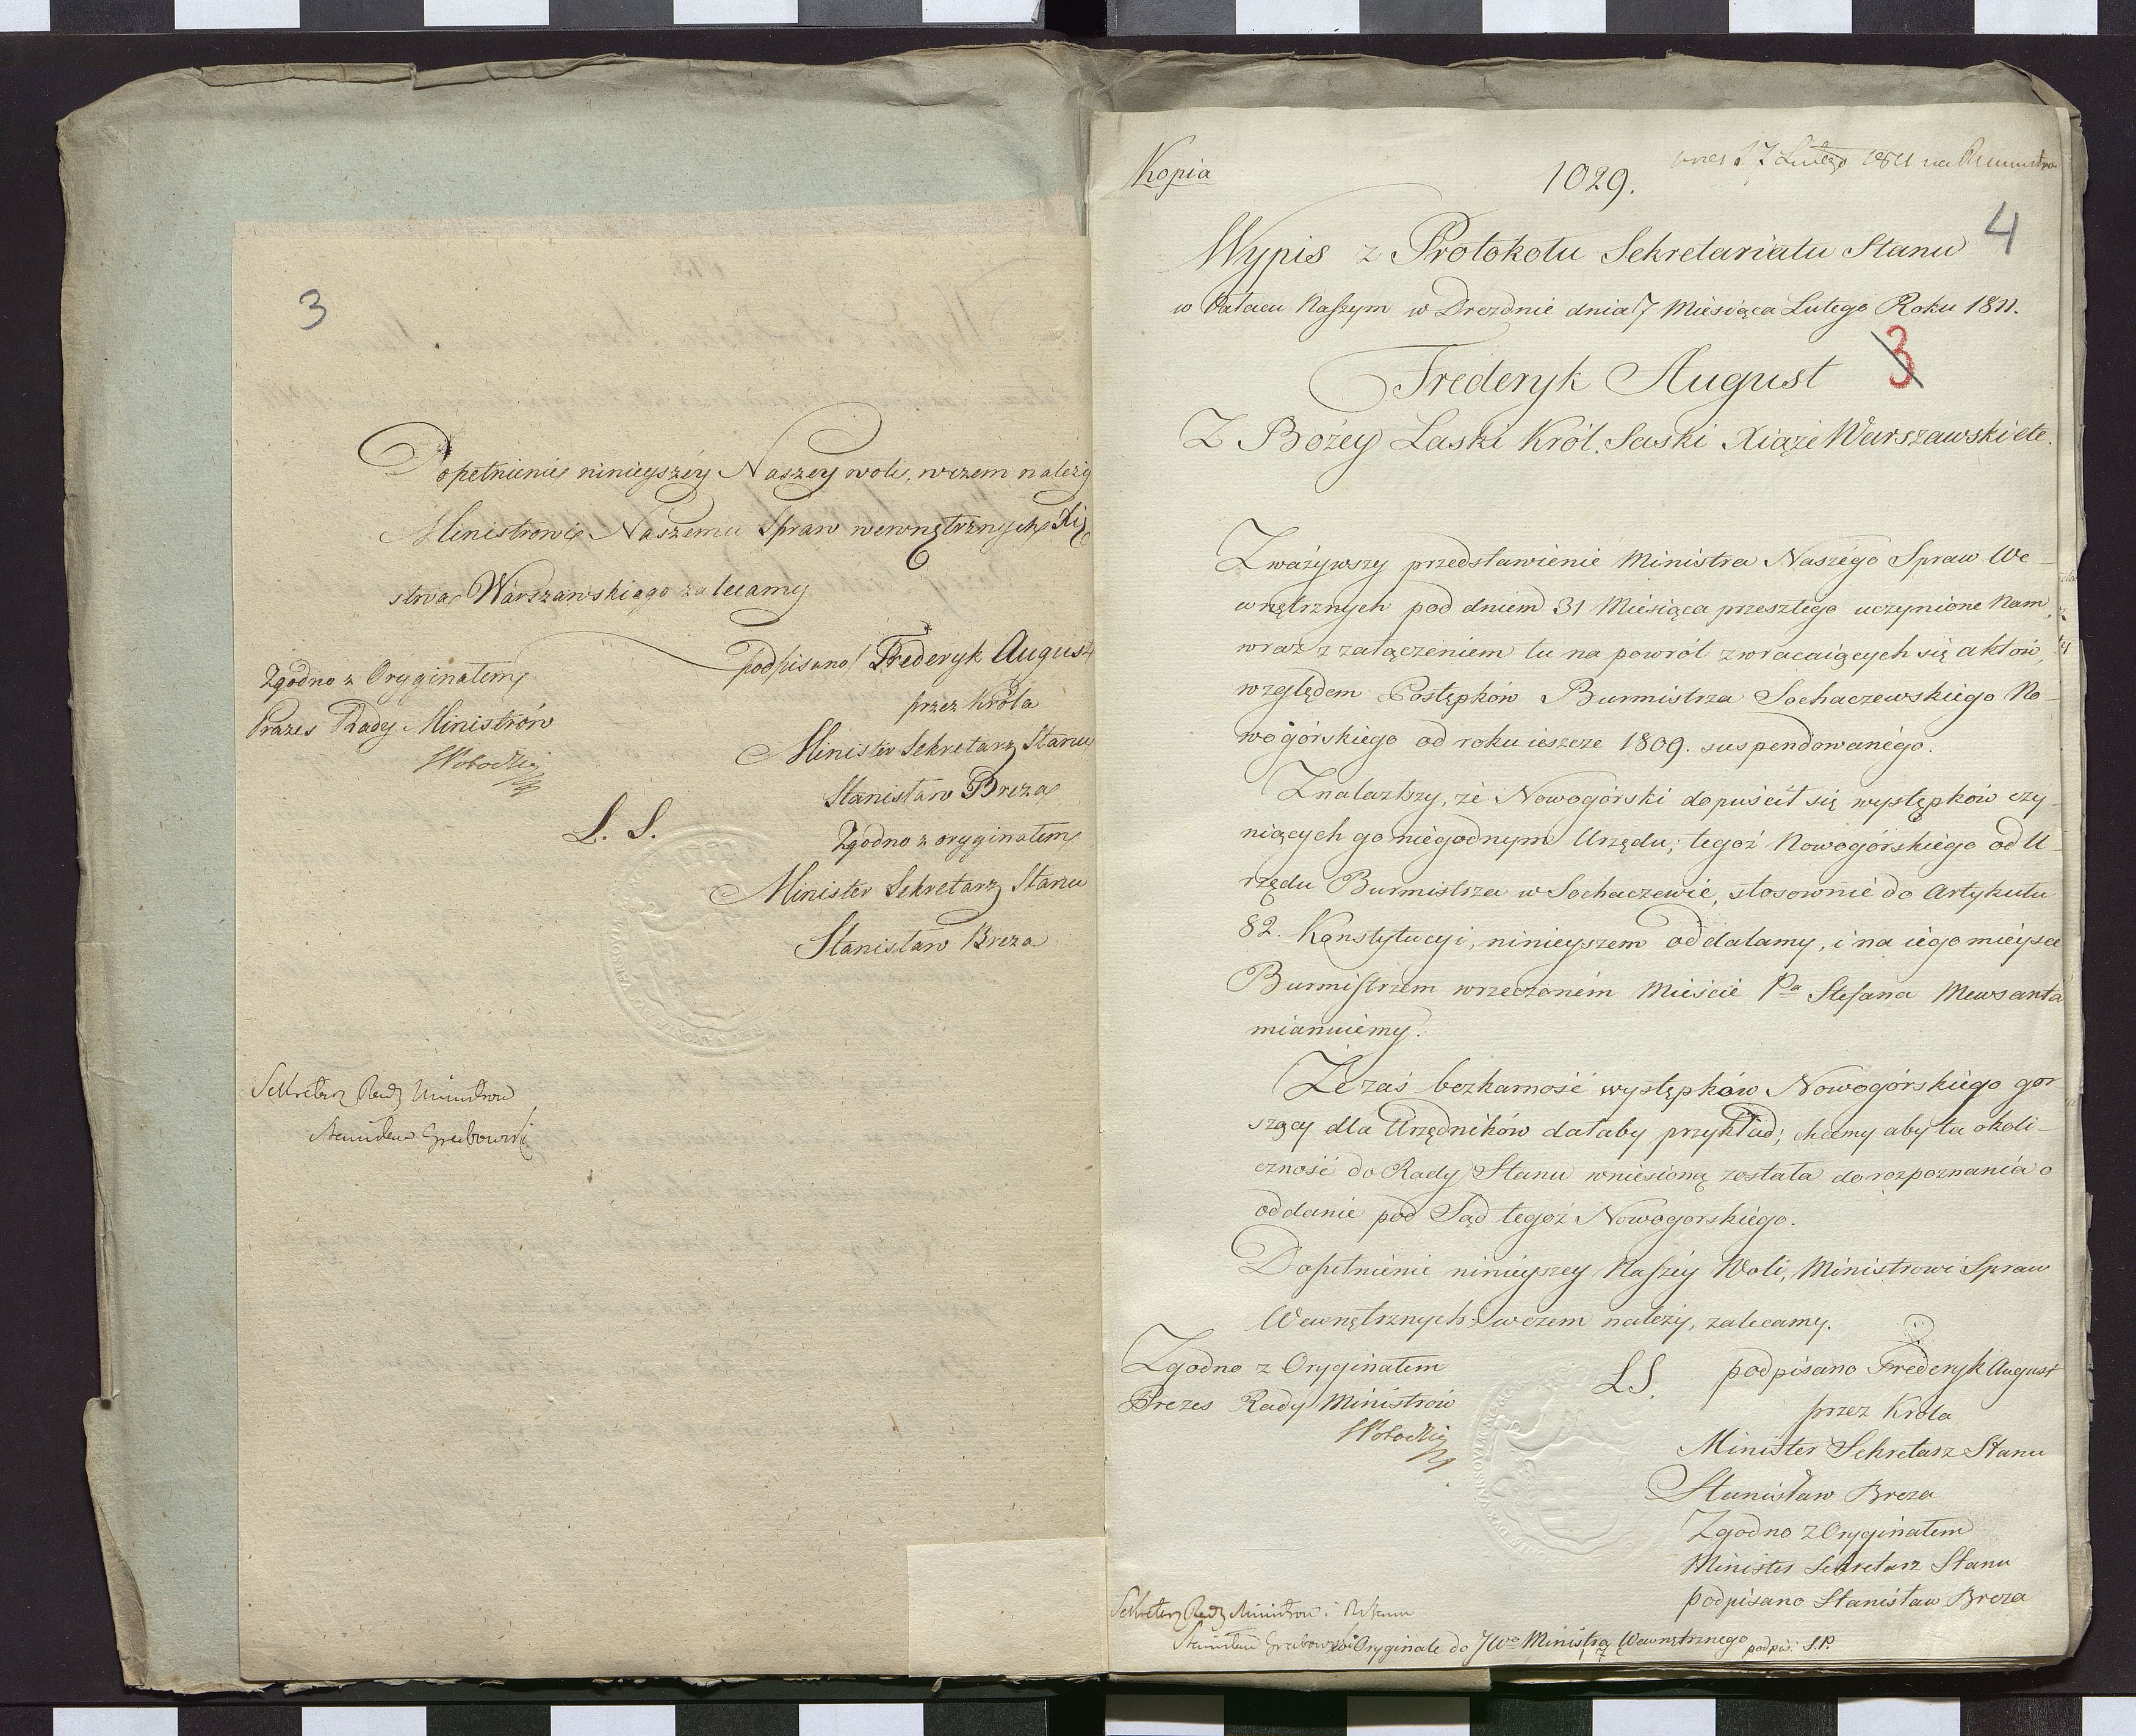 3
Dopełnienie ninieyszéy Naszey woli, wczem należy
Ministrowi Naszemu Spraw wewnętrznych Xię
stwa Warszawskiego zalecamy
podpisano/ Frederyk August
przez Króla
Minister Sekretarz Stanu
Stanisław Breza
Zgodno z oryginałem
Minister Sekretarz Stanu
Stanisław Breza
Zgodno z Oryginałem
Prezes Rady Ministrów
L. S.
Sekretarz Rady Ministrow
Stanisław Grabowski
Kopia
1029.
17 Lutego 1811 na
4
Wypis z Protokołu Sekretariatu Stanu
w Pałacu Naszym w Dreznie dnia 7 Miesiąca Lutego Roku 1811.
3
Frederyk August
Z Bożey Łaski Król. Saski Xiąże Warszawski etc.
Zważywszy przedstawienie Ministra Naszégo Spraw We-
wnętrznych pod dniem 31 Miesiąca przeszłego uczynione Nam,
wraz z załączeniem tu na powrót zwracaiących się aktów,
względem Postępków Burmistrza Sochaczewskiego No-
wogórskiego od roku ieszcze 1809. suspendowanégo.
Znalazłszy, że Nowogórski dopuścił się występków czy-
niących go niegodnym Urzędu; tegoż Nowogórskiégo od U-
rzędu Burmistrza w Sochaczewie, stosownie do Artykułu
82. Konstytucyi, ninieyszem oddalamy, i na iego mieysce
Burmistrzem wrzeczoném Mieście Pa Stefana Mewsanta
mianuiemy.
Że zaś bezkarność występków Nowogórskiego gor
szący dla Urzędników dałaby przykład; chcemy aby ta okoli-
czność do Rady Stanu wniesioną została do rozpoznania o
oddanie pod Sąd tegoż Nowogorskiégo.
Dopełnienie ninieyszey Naszéy Woli, Ministrowi Spraw
Wewnętrznych wczem należy, zalecamy.
Zgodno z Oryginałem
Prezes Rady Ministrów
LS.
podpisano Frederyk August
przez Króla
Minister Sekretarz Stanu
Stanisław Breza
Zgodno z Oryginałem
Minister Sekretarz Stanu
podpisano Stanisław Breza
Sekretarz Rady Ministrow i
Stanisław Grabowski
Oryginale do JWo Ministra Wewnętrznego podpis: S.P.